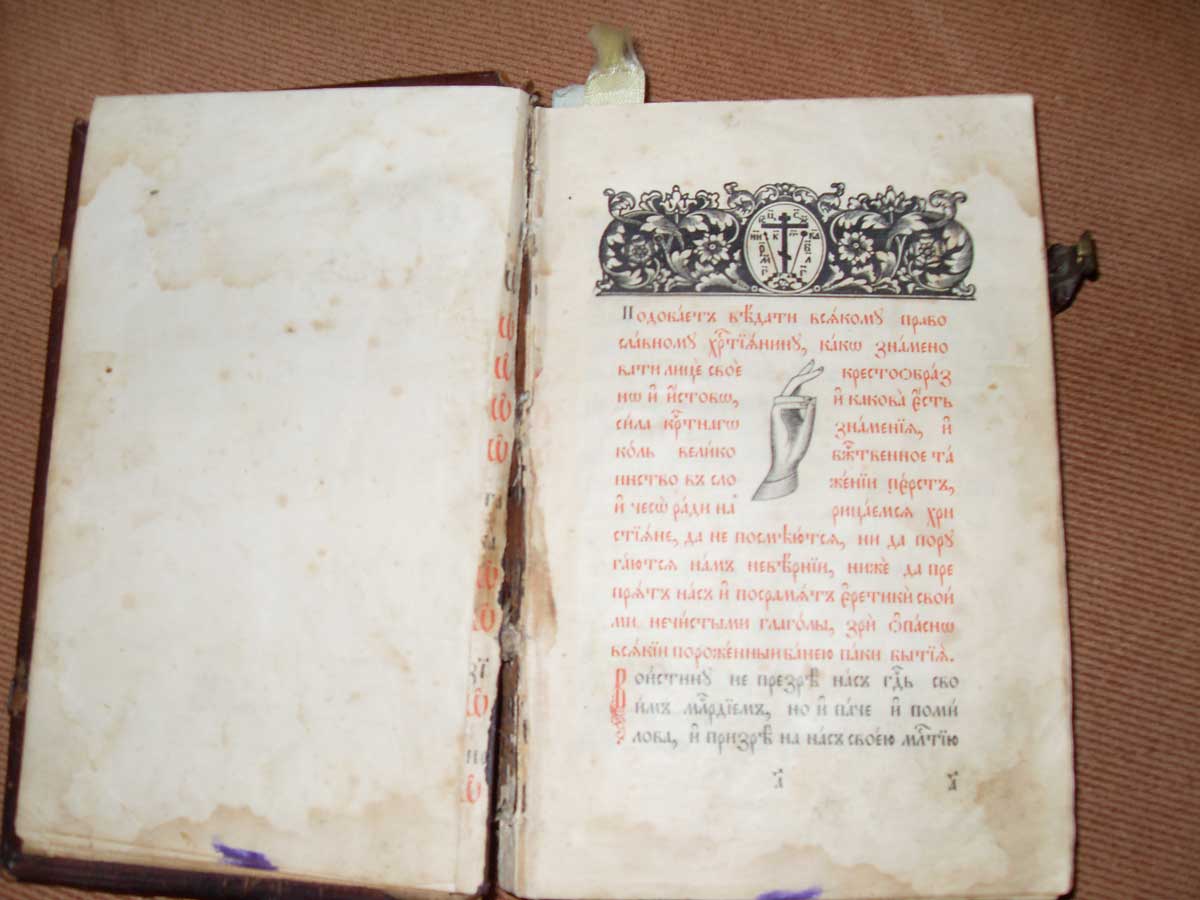 Подоба́етъ вѣ́дати всѧ́кому право
сла́вному хрⷭ҇тїѧ́нину, ка́кѡ зна́мено
вати лицѐ своѐ крестоѻбра́з
нѡ и҆ и҆́стовѡ, и҆ какова̀ є҆́сть
си́ла крⷭ҇тнагѡ зна́менїѧ, и҆
ко́ль вели́ко бж҃ⷭ҇твенное та́
инство въ сло же́нїи пє́рстъ,
и҆ чесѡ̀ ра́ди на рица́емсѧ хри
стїѧ́не, да не посмѣю́тсѧ, ни да пору
га́ютсѧ на́мъ невѣ́рнїи, нижѐ да пре
прѧ́тъ на́съ и҆ посрамѧ́тъ є҆ретикѝ свои́
ми нечи́стыми глаго́лы, зрѝ ѻ҆па́снѡ
всѧ́кїи порожє́нныи ба́нею па́ки бытїѧ̀.
Вои́стину не презрѣ̀ на́съ гдⷭ҇ь сво
и́мъ млⷭ҇рдїемъ, но и҆ па́че и҆ поми́
лова, и҆ призрѣ̀ на на́съ свое́ю млⷭ҇тїю